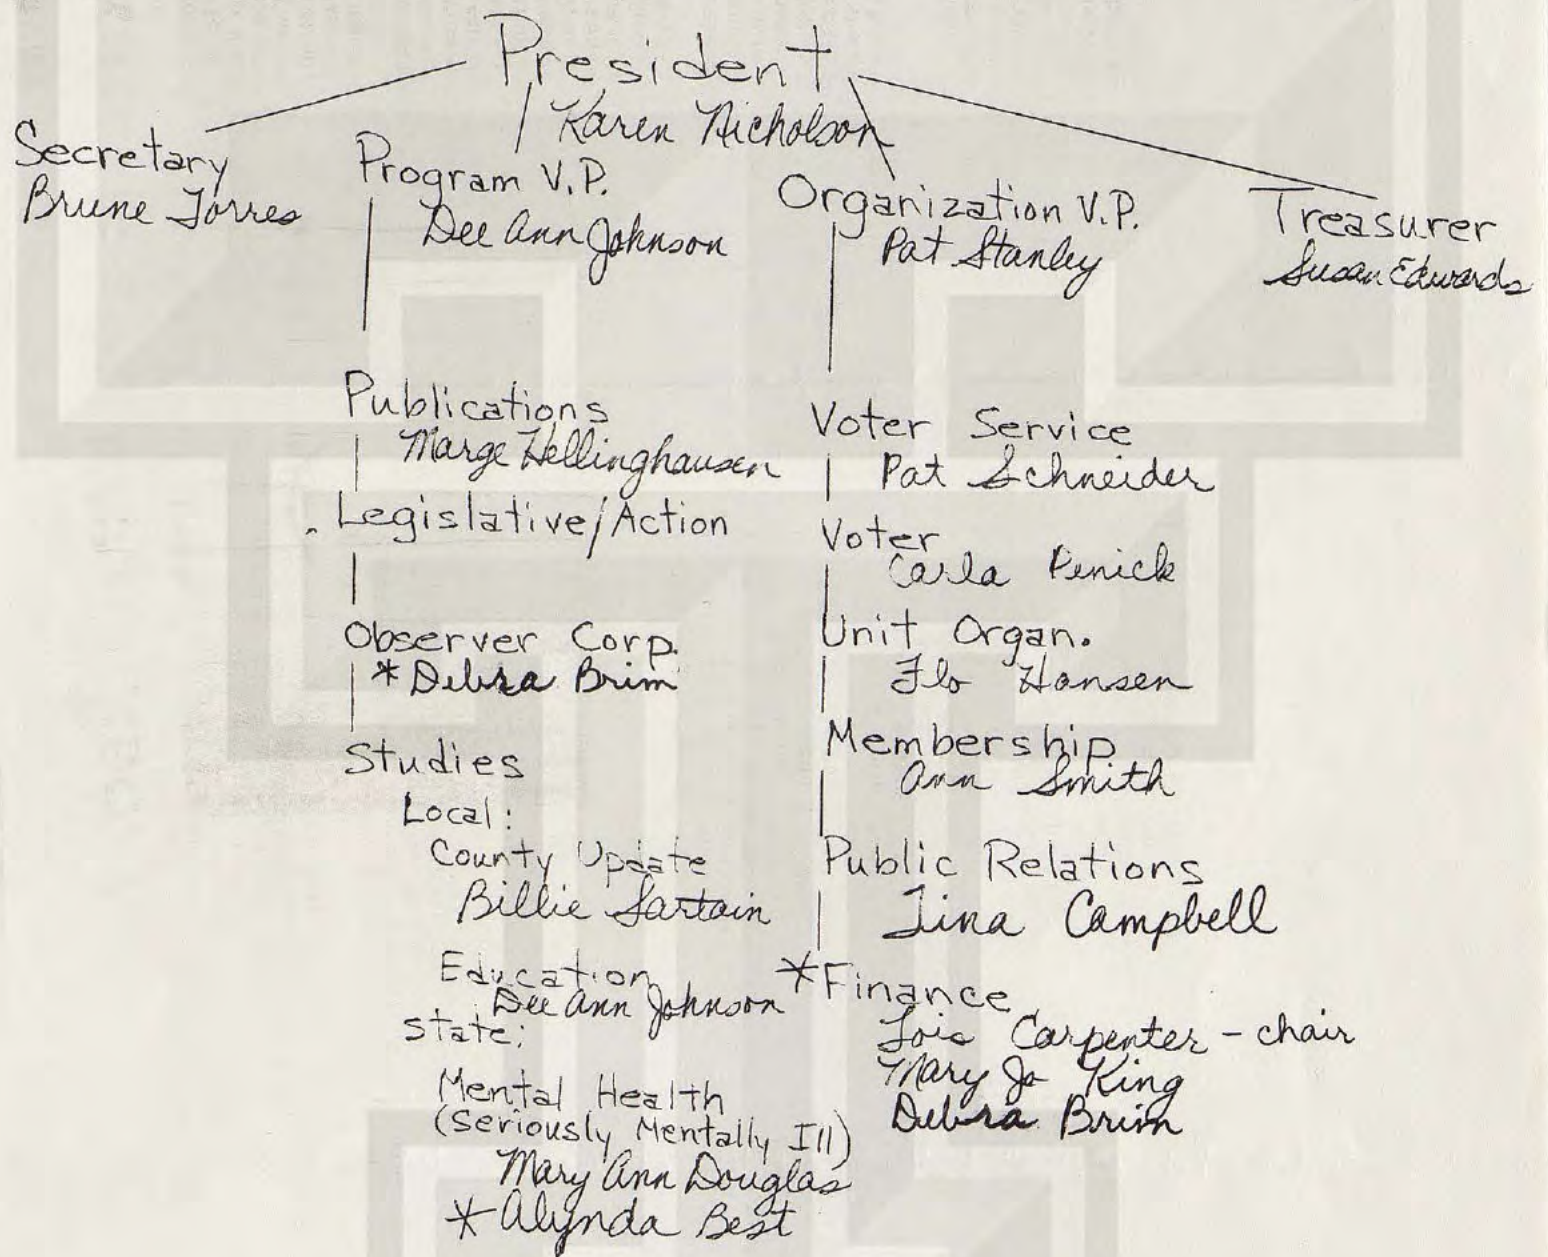 President
Karen Nicholson
Secretary
Brune Torres
Program V.P.
Dee Ann Johnson
Organization V.P.
Pat Stanley
Treasurer
Susan Edwards
Publications
Marge Hellinghausen
Legislative/Action
Observer Corp.
*Debra Brim
Studies
Local:
County Update
Billie Sartain
Education
Dee Ann Johnson
State:
Mental Health
(Seriously Mentally Ill)
Mary Ann Douglas
*Alynda Best
Voter Service
Pat Schneider
Voter
Carla Penick
Unit Organ.
Flo Hansen
Membership
Ann Smith
Public Relations
Tina Campbell
*Finance
Lois Carpenter - chair
Mary Jo King
Debra Brim